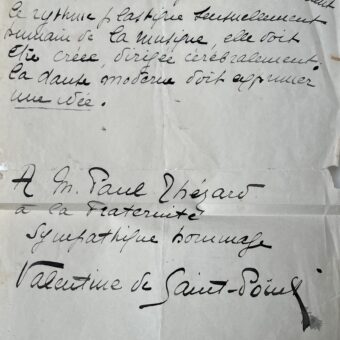 le rythme plastique sensuellement
humain de la musique, elle doit
être créée, dirigée cérébralement.
La danse moderne doit exprimer
une idée.
A M. Paul Thézard
à la Fraternité
sympathique hommage
Valentine de Saint-Point